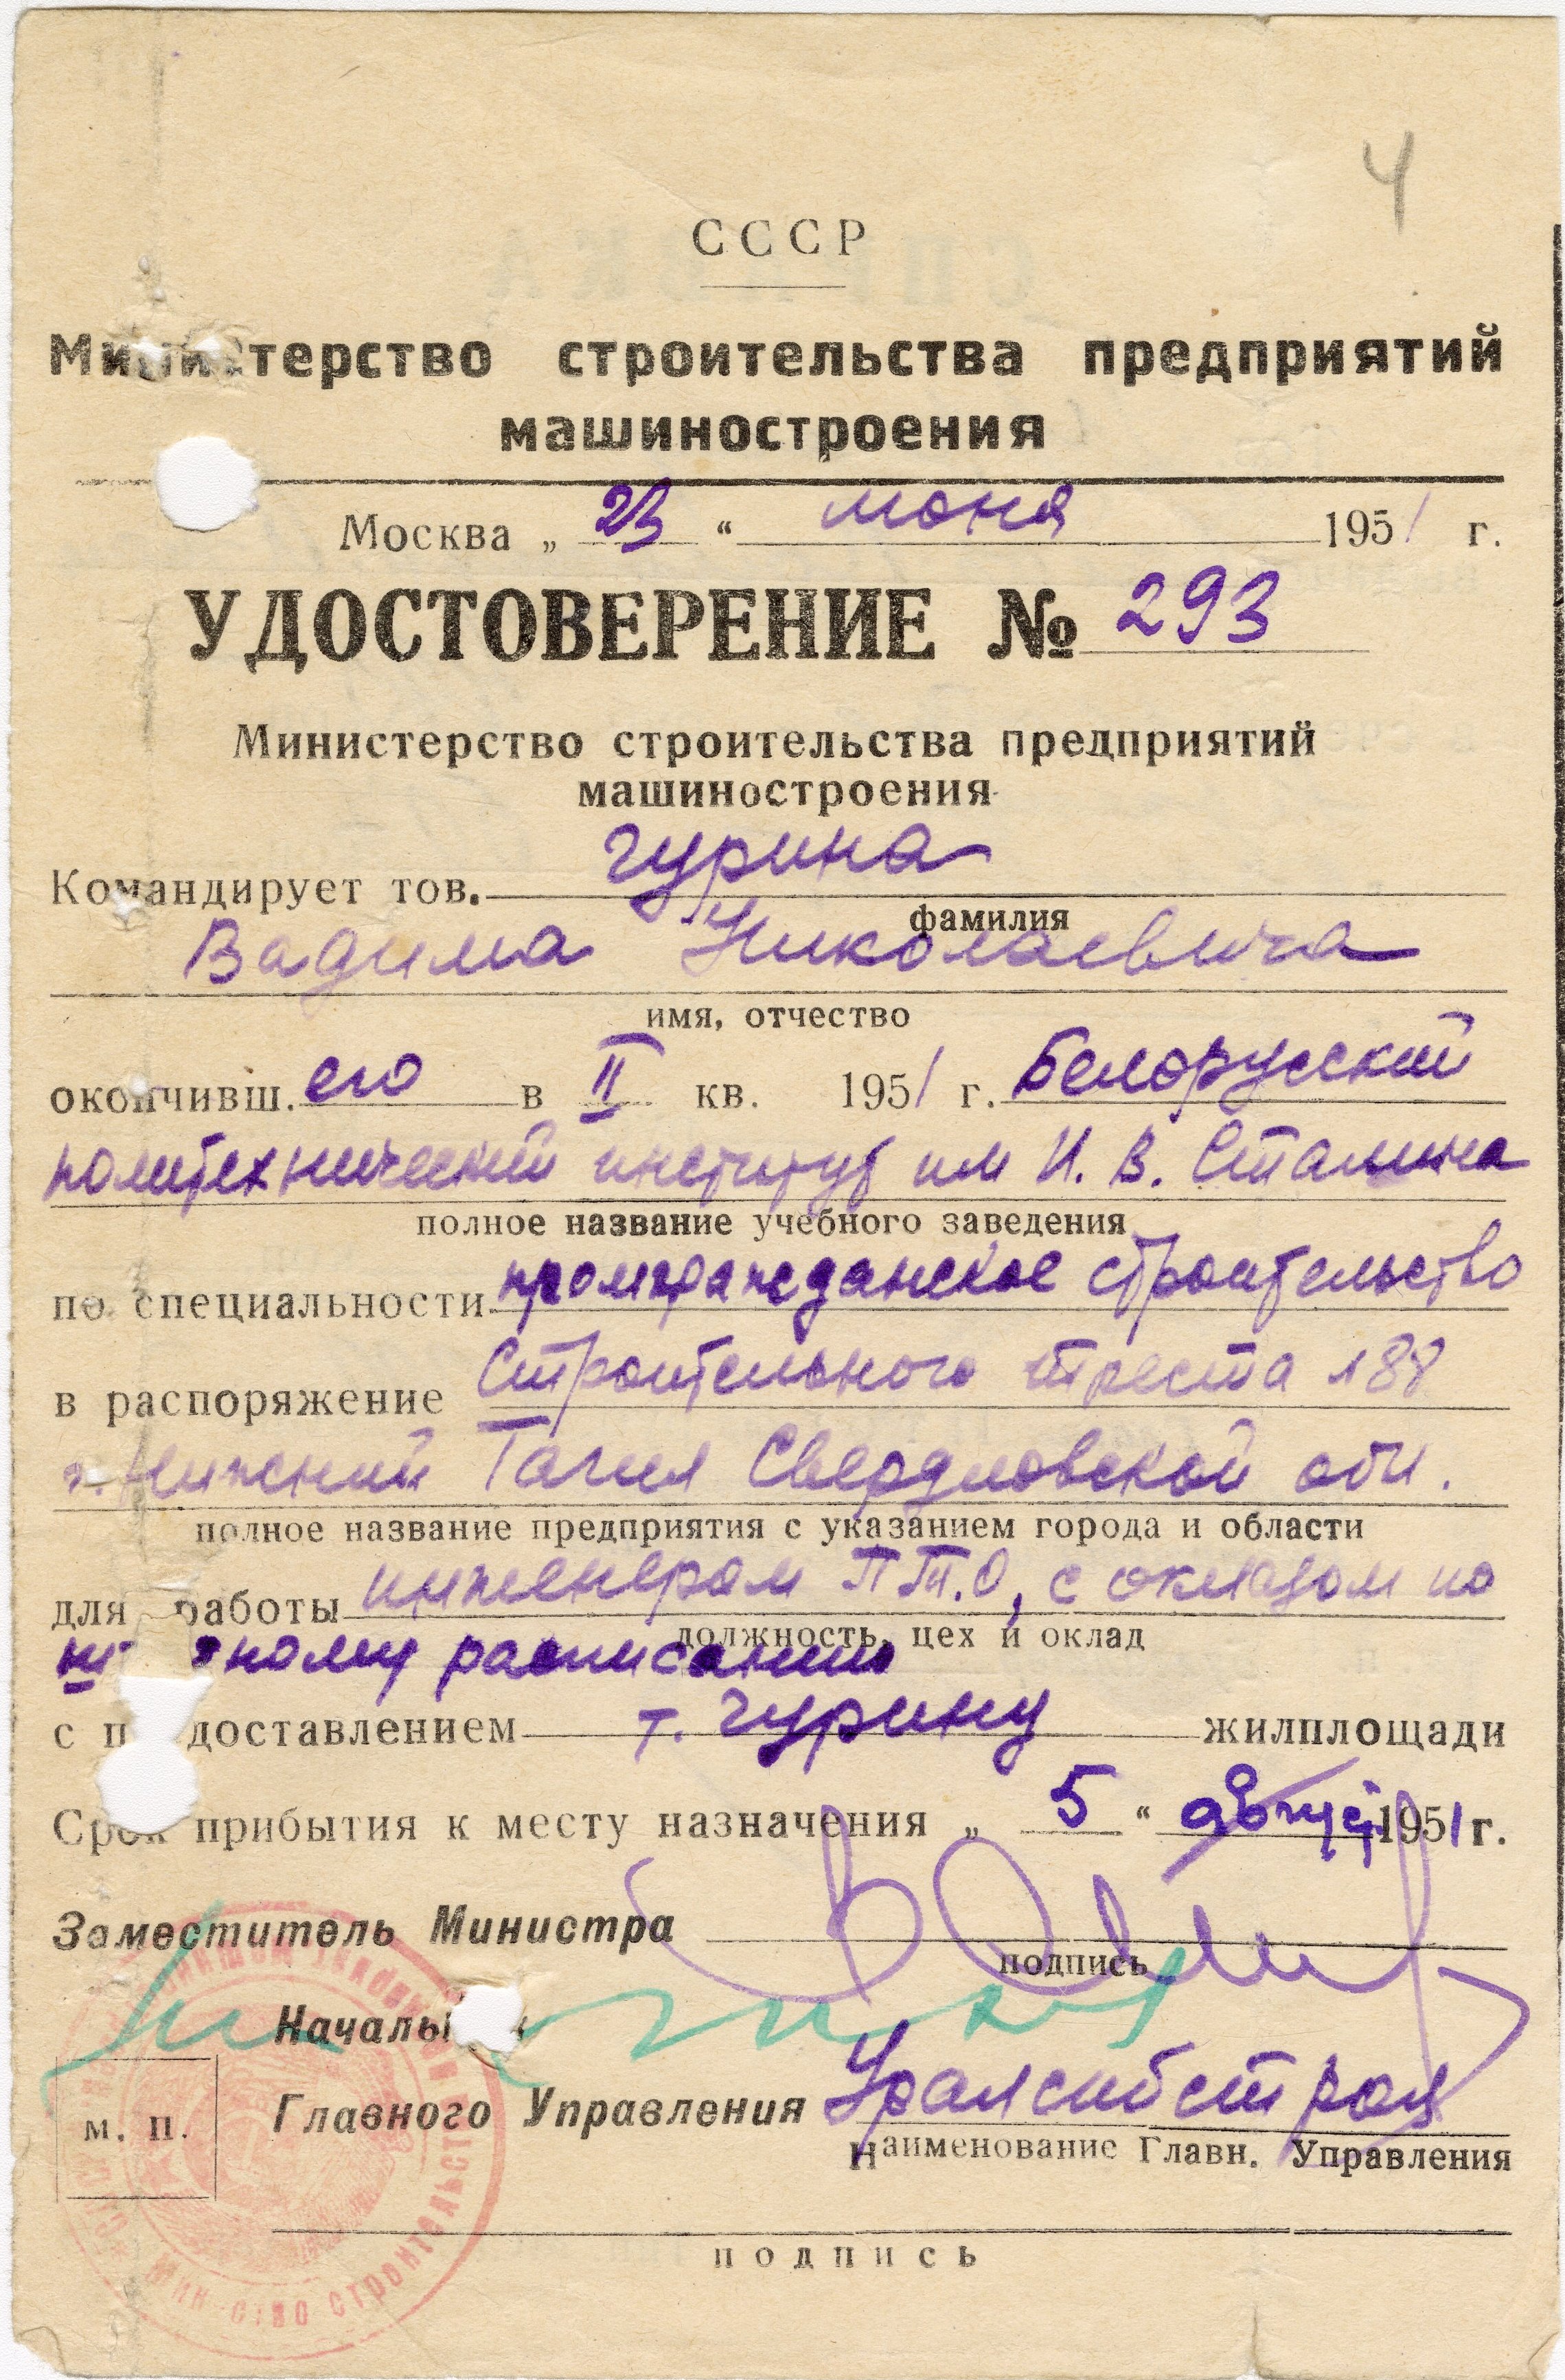 4
СССР
Министерство строительства предприятий
машиностроения
Москва „ 23 “ июня 1951 г.
УДОСТОВЕРЕНИЕ № 293
Министерство строительства предприятий
машиностроения
Командирует тов. Гурина
фамилия
Вадима Николаевича
имя, отчество
окончивш. его в II кв. 1951 г. Белорусский
политехнический институт им И. В. Сталина
полное название учебного заведения
по специальности промгражданское строительство
в распоряжение Строительного треста 188
г. Нижний Тагил Свердловской обл.
полное название предприятия с указанием города и области
для работы инженером ПТ.О, с окладом по
должность, цех и оклад
штатному расписанию
с предоставлением т. Гурину жилплощади
Срок прибытия к месту назначения „ 5 “ август 1951 г.
Заместитель Министра
подпись
Начальник
Главного Управления Уралсибстрой
Наименование Главн. Управления
м. п.
подпись